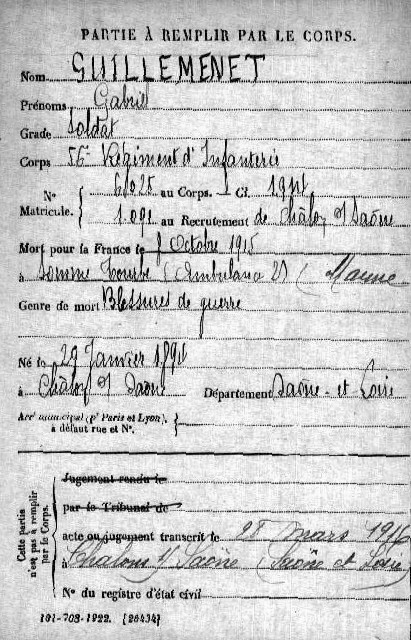 PARTIE À REMPLIR PAR LE CORPS.
Nom GUILLEMENET
Prénoms Gabriel
Grade Soldat
Corps 56e Régiment d'Infanterie
N° Matricule. { 6025 au Corps. — Cl. 1914
1.091 au Recrutement de Châlon s/ Saône
Mort pour la France le Octobre 1915
à Somme Tourbe (Ambulance 2) (Marne
Genre de mort Blessures de guerre
Né le 29 Janvier 1894
à Châlon s/ Saône Département Saône-et Loire
Arrt municipal (pr Paris et Lyon),
à défaut rue et N°.
Cette partie n'est pas à remplir par le Corps.
Jugement rendu le
par le Tribunal de
acte ou jugement transcrit le 28 mars 1916
à Chalons s/ Saône (Saône et Loire)
N° du registre d'état civil
101-708-1922. [26434]